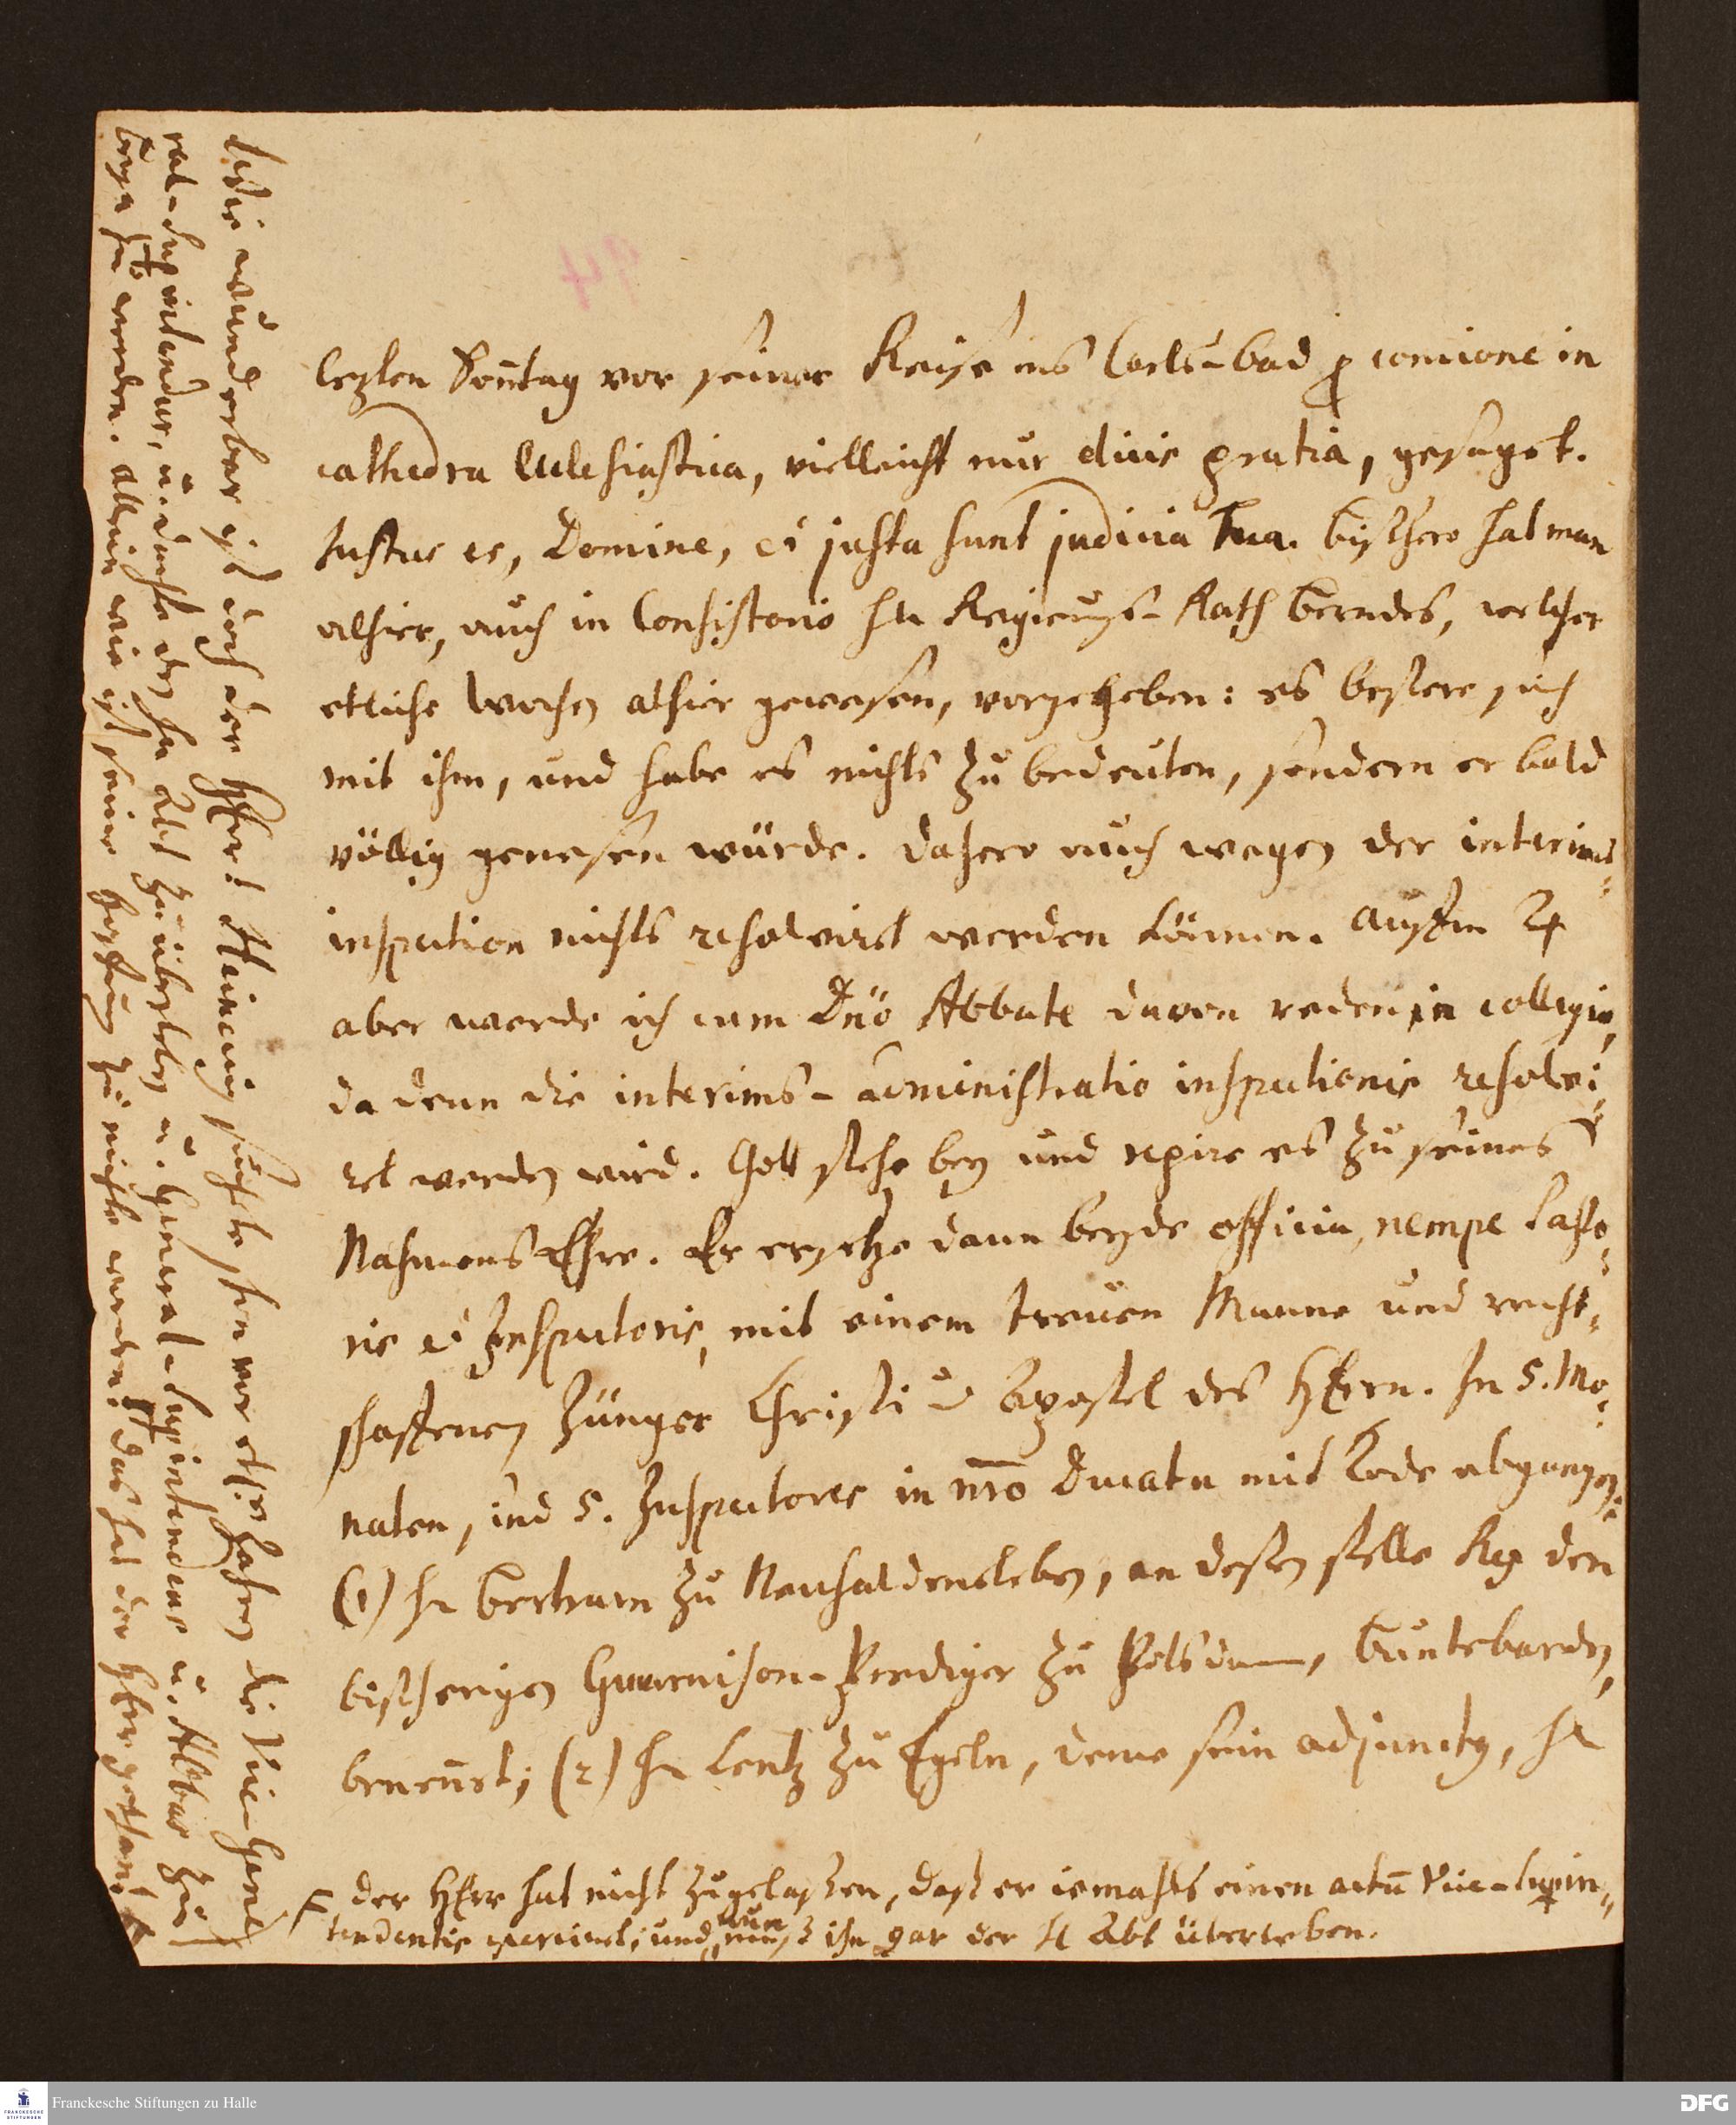 letzten Sontag vor seiner Reise ins Carls-bad p concione in
cathedra Ecclesiastica, vielleicht nur dicis gratia, gesaget.
Justus es, Domine, et justa sunt judicia tua. bißhero hat man
alhier, auch in Consistorio H. Regierungs-Rath Berndes, welcher
etliche Wochen alhier gewesen, vorgegeben: es bessere sich
mit ihm, und habe es nichts zu bedeuten, sondern er bald
völlig genesen würde. Dahero auch wegen der interims-
inspection nichts resolviret werden können. 
aber werde ich cum Dno Abbate davon reden in collegio,
da denn die interims-administratio inspectionis resolvi-
ret werden wird. Gott stehe bey und regire es zu seines
Nahmens Ehre. Er ersetze dann beyde officia, nempe Pasto-
ris et Inspectoris, mit einem treuen Manne und recht-
schaffenen Jünger Christi u. Apostel des HErrn. In 5. Mo-
naten, sind 5. Inspectores in nro Ducatu mit Tode abgangen:
(1) H. Bertram zu Neuhaldensleben, an deßen stelle Rex den
bißherigen Guarnison-Prediger zu Potsdam, Buntebarden,
benennet; (2) H. Lentz zu Egeln, deme sein adjunctus, H.
der HErr hat nicht zugelaßen, daß er iemahls einen actu Vice-Superin-
tendentis exerciret; und nun muß ihn gar der H. Abt überleben.
Wie wunderbar ist doch der HErr! Kleinau suchte schon vor etl. Jahren die Vice-Gene-
ral-Superintendur, u. dachte den H. Abt zu überleben u. General-Superintendens u. Abbas zu
Berga zu werden. Allein wie ist seine Hoffnung zu nichte worden! Das hat der HErr gethan!